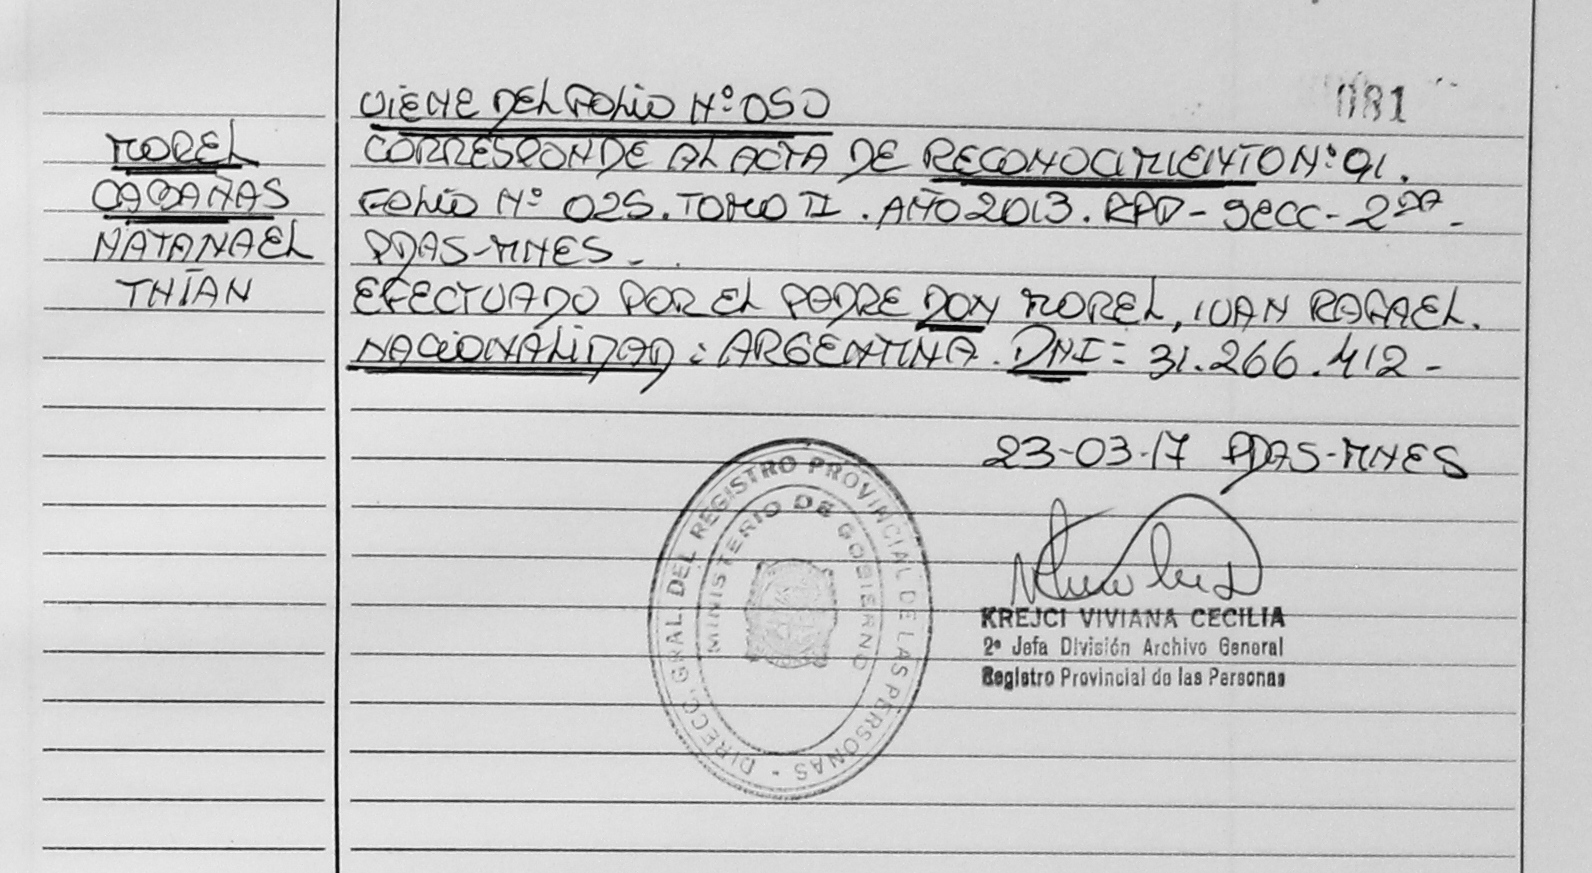 081
VIENE DEL FOLIO Nº 050
MOREL
CABAÑAS
NATANAEL
THIAN
CORRESPONDE AL ACTA DE RECONOCIMIENTO Nº 91.
FOLIO Nº 025. TOMO II. AÑO 2013. RPP - SECC - 2DA -
PDAS-MNES -
EFECTUADO POR EL PADRE DON MOREL, IVAN RAFAEL.
NACIONALIDAD: ARGENTINA. DNI: 31.266.412 -
23-03-17 PDAS-MNES
DIRECC. GRAL. DEL REGISTRO PROVINCIAL DE LAS PERSONAS -
MINISTERIO DE GOBIERNO
KREJCI VIVIANA CECILIA
2ª Jefa División Archivo General
Registro Provincial de las Personas